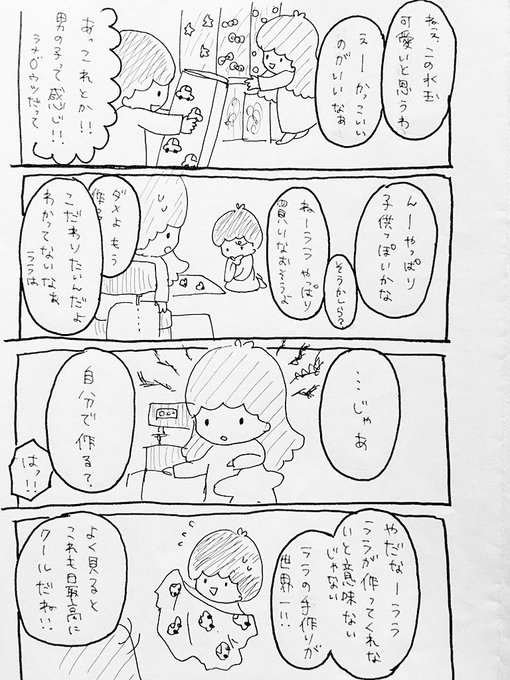 ねぇ、この水玉
可愛いと思うわ
えーかっこいい
のがいいなぁ
あっこれとか!!
男の子って感じ!!
んーやっぱり
子供っぽいかな
そうかしら?
ねーララ やぱり
買いなおそうよ
ダメよ もう
作る
こだわりたいんだよ
わかってないなぁ
ララは
…じゃあ
自分で作るて、
はっ!!
やだなーララ
ララが作ってくれな
いと意味ない
じゃない
ララの手作りが
世界一!!
よく見ると
これも最高に
クールだね!!